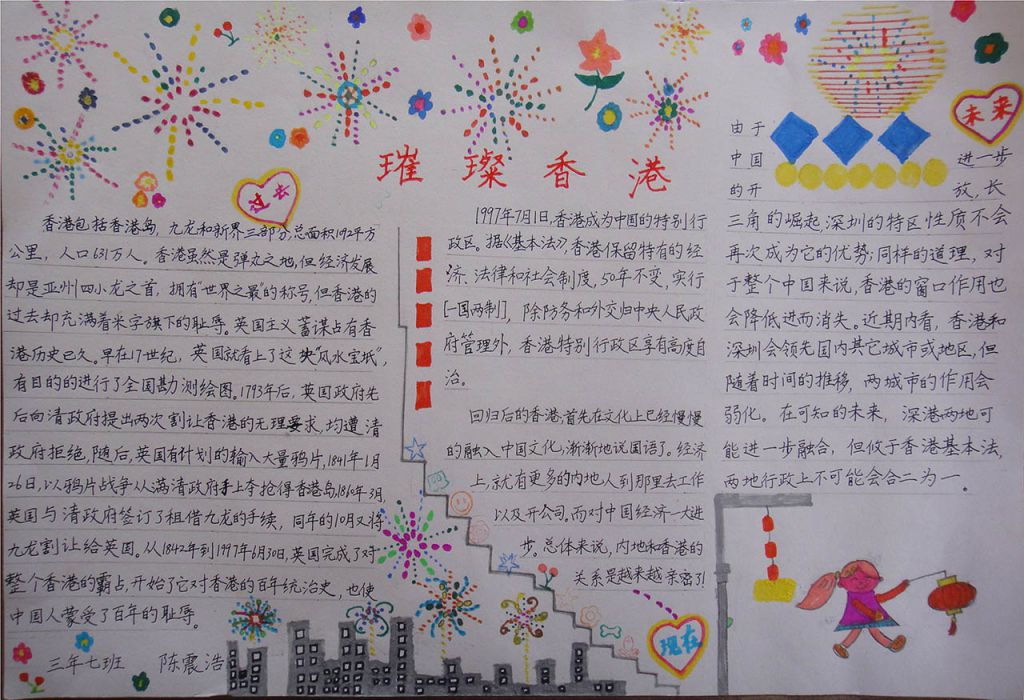 璀璨香港
过去
香港包括香港岛，九龙和新界三部分，总面积1092平方
公里，人口631万人。香港虽然是弹丸之地，但经济发展
却是亚州四小龙之首，拥有"世界之最"的称号，但香港的
过去却充满着米字旗下的耻辱。英国主义蓄谋占有香
港历史已久。早在17世纪，英国就看上了这块"风水宝坻"，
有目的的进行了全国勘测绘图。1793年后，英国政府先
后向清政府提出两次割让香港的无理要求，均遭清
政府拒绝，随后，英国有计划的输入大量鸦片，1841年1月
26日，以鸦片战争从满清政府手上夺抢得香港岛，1860年3月，
英国与清政府签订了租借九龙的手续，同年的10月又将
九龙割让给英国。从1842年到1997年6月30日，英国完成了对
整个香港的霸占，开始了它对香港的百年统治史，也使
中国人蒙受了百年的耻辱。
三年七班 陈震浩
1997年7月1日，香港成为中国的特别行
政区。据《基本法》，香港保留特有的经
济、法律和社会制度，50年不变，实行
[一国两制]，除防务和外交归中央人民政
府管理外，香港特别行政区享有高度自
治。
回归后的香港，首先在文化上已经慢慢
的融入中国文化，渐渐地说国语了。经济
上，就有更多的内地人到那里去工作
以及开公司。而对中国经济一大进
步。总体来说，内地和香港的
关系是越来越亲密了！
现在
未来
由于
中国 进一步
的开 放，长
三角的崛起，深圳的特区性质不会
再次成为它的优势；同样的道理，对
于整个中国来说，香港的窗口作用也
会降低进而消失。近期内看，香港和
深圳会领先国内其它城市或地区，但
随着时间的推移，两城市的作用会
弱化。在可知的未来，深港两地可
能进一步融合，但攸于香港基本法，
两地行政上不可能会合二为一。